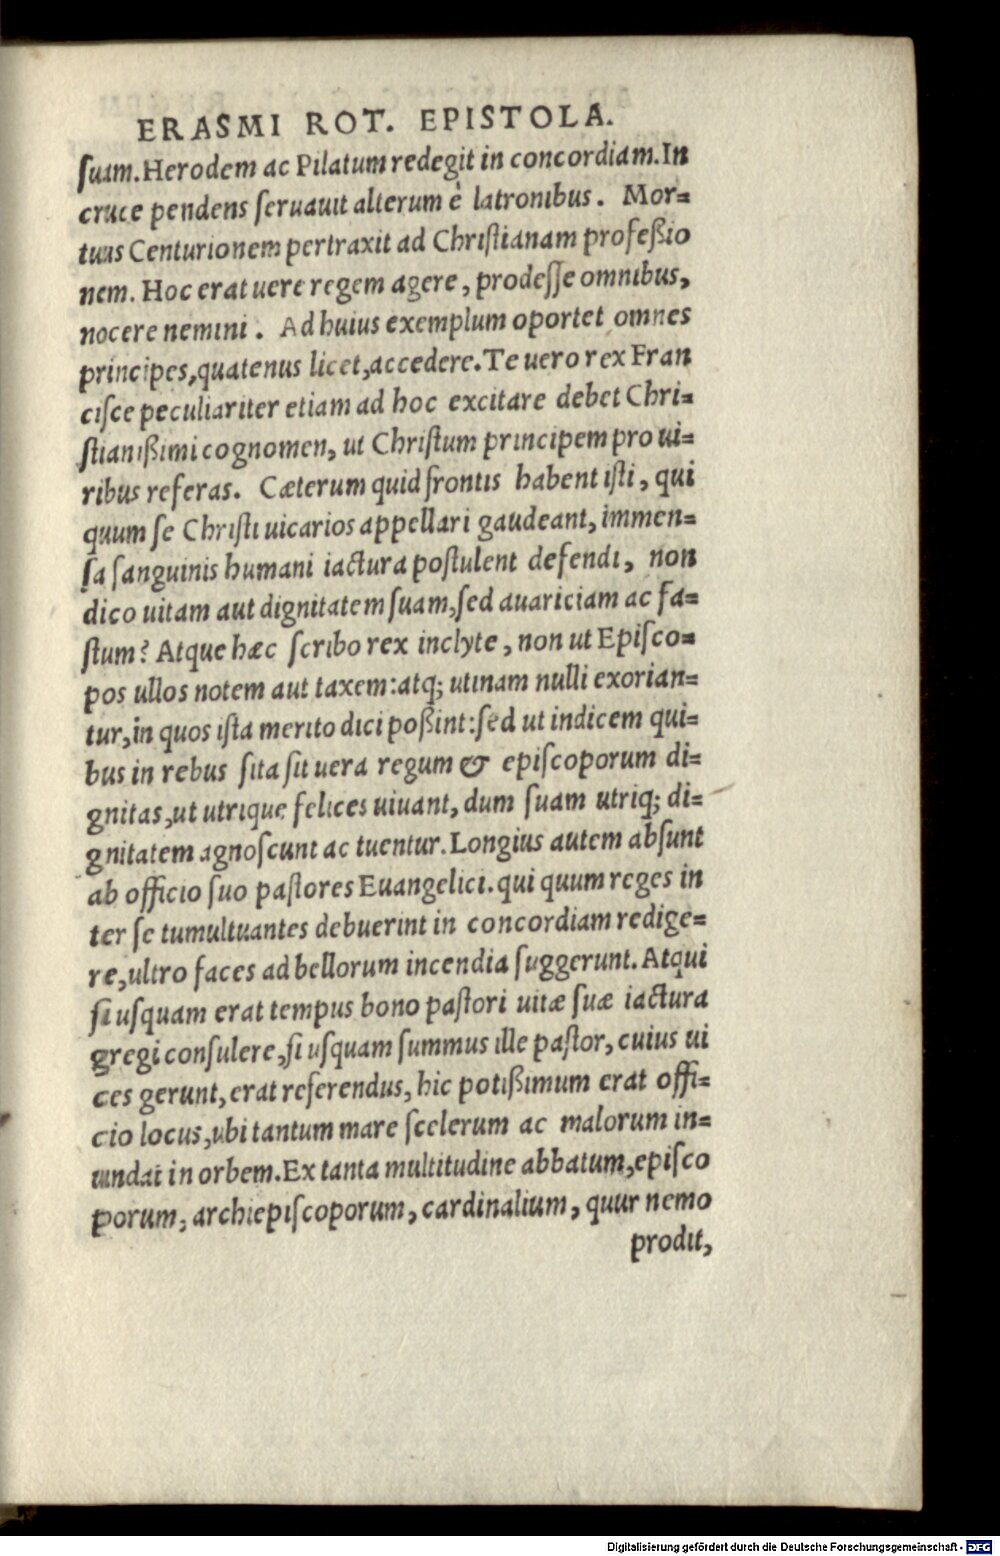 ERASMI ROT. EPISTOLA.
ſuam. Herodem ac Pilatum redegit in concordiam. In
cruce pendens ſeruauit alterum è latronibus. Mor=
tuus Centurionem pertraxit ad Chriſtianam profeßio
nem. Hoc erat uere regem agere, prodeſſe omnibus,
nocere nemini. Ad huius exemplum oportet omnes
principes, quatenus licet, accedere. Te uero rex Fran
ciſce peculiariter etiam ad hoc excitare debet Chri=
ſtianißimi cognomen, ut Chriſtum principem pro ui=
ribus referas. Cæterum quid frontis habent iſti, qui
quum ſe Chriſti uicarios appellari gaudeant, immen=
ſa ſanguinis humani iactura poſtulent defendi, non
dico uitam aut dignitatem ſuam, ſed auariciam ac fa=
ſtum? Atque hæc ſcribo rex inclyte, non ut Epiſco=
pos ullos notem aut taxem: atq; utinam nulli exorian=
tur, in quos iſta merito dici poßint: ſed ut indicem qui=
bus in rebus ſita ſit uera regum & epiſcoporum di=
gnitas, ut utrique felices uiuant, dum ſuam utriq; di=
gnitatem agnoſcunt ac tuentur. Longius autem abſunt
ab officio ſuo paſtores Euangelici. qui quum reges in
ter ſe tumultuantes debuerint in concordiam redige=
re, ultro faces ad bellorum incendia ſuggerunt. Atqui
ſi uſquam erat tempus bono paſtori uitæ ſuæ iactura
gregi conſulere, ſi uſquam ſummus ille paſtor, cuius ui
ces gerunt, erat referendus, hic potißimum erat offi=
cio locus, ubi tantum mare ſcelerum ac malorum in=
undat in orbem. Ex tanta multitudine abbatum, epiſco
porum, archiepiſcoporum, cardinalium, quur nemo
prodit,
Digitalisierung gefördert durch die Deutsche Forschungsgemeinschaft - DFG